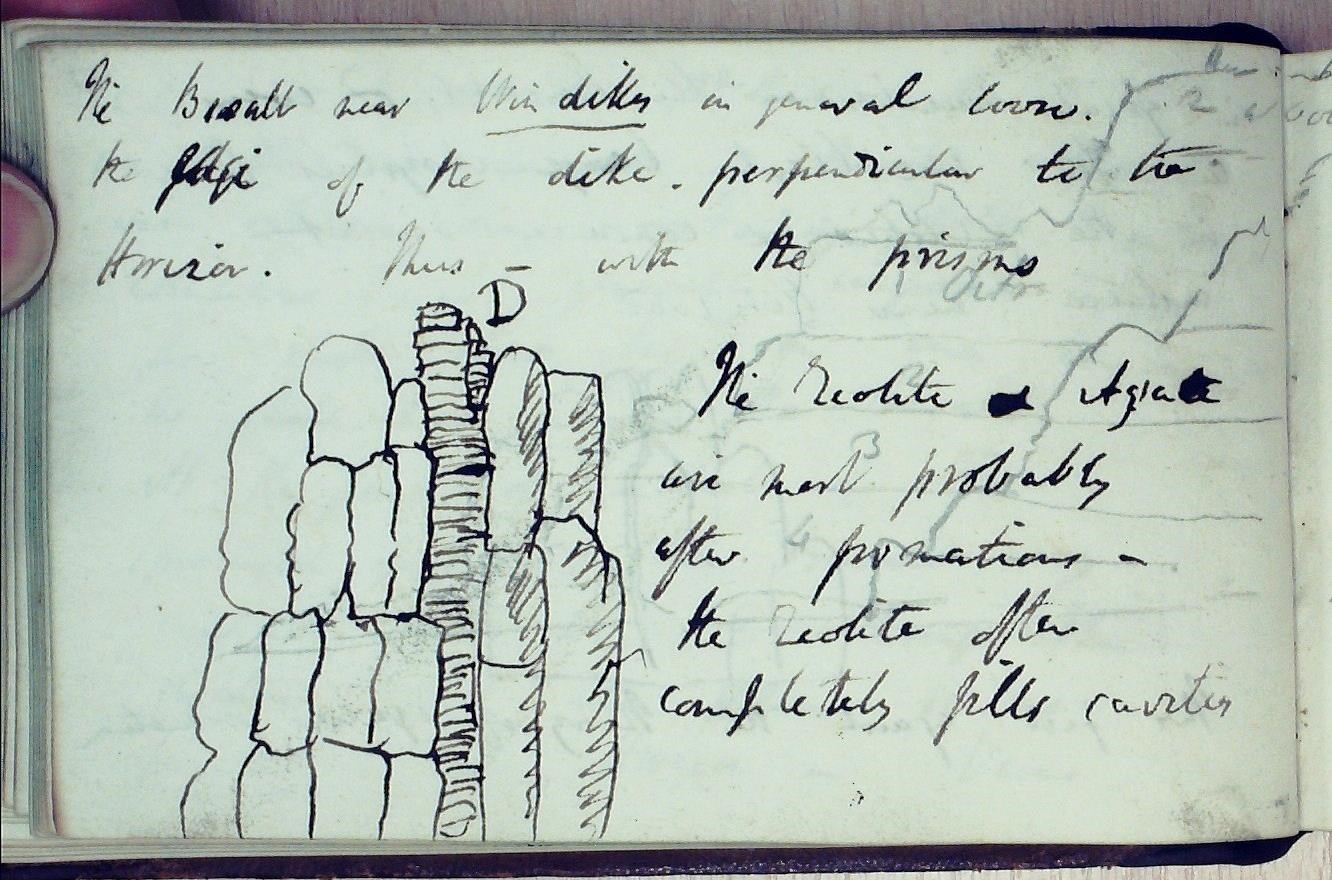 The Basalt near Win dikes in general loose.
the edge of the dike. perpendicular to the
Horizon. Thus - with the prisms
D
The Zeolite & Agate
are most probably
after formations -
the zeolite often
completely fills cavities